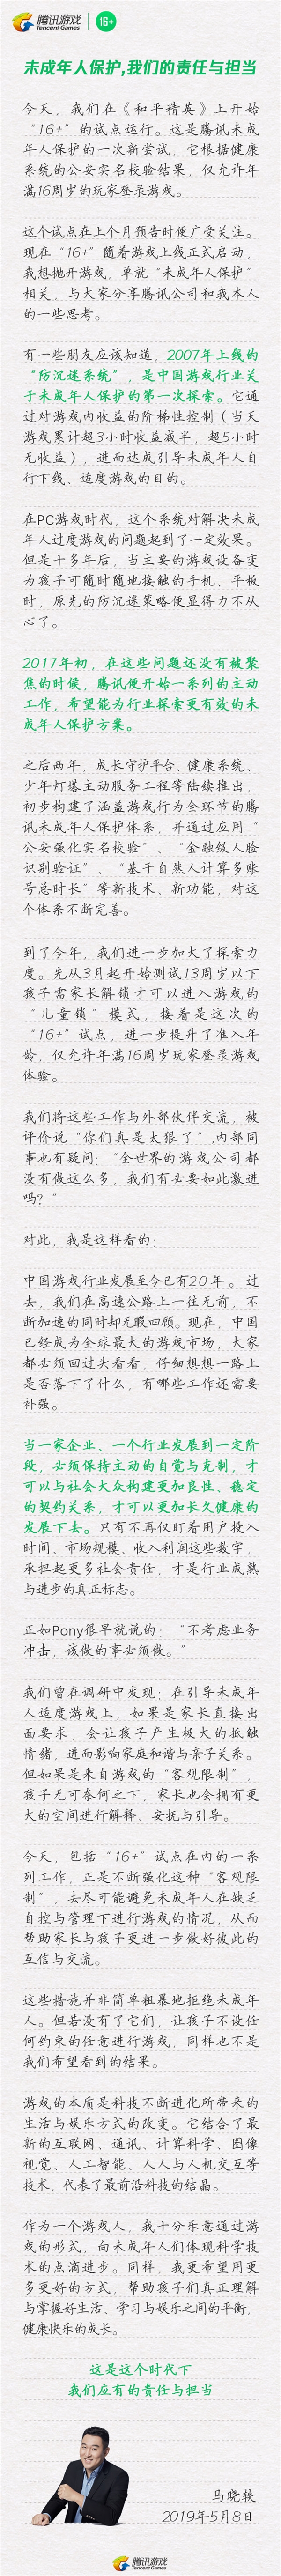 腾讯游戏
Tencent Games
16+
未成年人保护,我们的责任与担当
今天，我们在《和平精英》上开始
“16+”的试点运行。这是腾讯未成
年人保护的一次新尝试，它根据健康
系统的公安实名校验结果，仅允许年
满16周岁的玩家登录游戏。
这个试点在上个月预告时便广受关注。
现在“16+”随着游戏上线正式启动，
我想抛开游戏，单就“未成年人保护”
相关，与大家分享腾讯公司和我本人
的一些思考。
有一些朋友应该知道，2007年上线的
“防沉迷系统”，是中国游戏行业关
于未成年人保护的第一次探索。它通
过对游戏内收益的阶梯性控制（当天
游戏累计超3小时收益减半，超5小时
无收益），进而达成引导未成年人自
行下线、适度游戏的目的。
在PC游戏时代，这个系统对解决未成
年人过度游戏的问题起到了一定效果。
但是十多年后，当主要的游戏设备变
为孩子可随时随地接触的手机、平板
时，原先的防沉迷策略便显得力不从
心了。
2017年初，在这些问题还没有被聚
焦的时候，腾讯便开始一系列的主动
工作，希望能为行业探索更有效的未
成年人保护方案。
之后两年，成长守护平台、健康系统、
少年灯塔主动服务工程等陆续推出，
初步构建了涵盖游戏行为全环节的腾
讯未成年人保护体系，并通过应用“
公安强化实名校验”、“金融级人脸
识别验证”、“基于自然人计算多账
号总时长”等新技术、新功能，对这
个体系不断完善。
到了今年，我们进一步加大了探索力
度。先从3月起开始测试13周岁以下
孩子需家长解锁才可以进入游戏的
“儿童锁”模式，接着是这次的
“16+”试点，进一步提升了准入年
龄，仅允许年满16周岁玩家登录游戏
体验。
我们将这些工作与外部伙伴交流，被
评价说“你们真是太狠了”,内部同
事也有疑问：“全世界的游戏公司都
没有做这么多，我们有必要如此激进
吗？”
对此，我是这样看的：
中国游戏行业发展至今已有20年。过
去，我们在高速公路上一往无前，不
断加速的同时却无暇回顾。现在，中国
已经成为全球最大的游戏市场，大家
都必须回过头看看，仔细想想一路上
是否落下了什么，有哪些工作还需要
补强。
当一家企业、一个行业发展到一定阶
段，必须保持主动的自觉与克制，才
可以与社会大众构建更加良性、稳定
的契约关系，才可以更加长久健康的
发展下去。只有不再仅盯着用户投入
时间、市场规模、收入利润这些数字，
承担起更多社会责任，才是行业成熟
与进步的真正标志。
正如Pony很早就说的：“不考虑业务
冲击，该做的事必须做。”
我们曾在调研中发现：在引导未成年
人适度游戏上，如果是家长直接出
面要求，会让孩子产生极大的抵触
情绪，进而影响家庭和谐与亲子关系。
但如果是来自游戏的“客观限制”，
孩子无可奈何之下，家长也会拥有更
大的空间进行解释、安抚与引导。
今天，包括“16+”试点在内的一系
列工作，正是不断强化这种“客观限
制”，去尽可能避免未成年人在缺乏
自控与管理下进行游戏的情况，从而
帮助家长与孩子更进一步做好彼此的
互信与交流。
这些措施并非简单粗暴地拒绝未成年
人。但若没有了它们，让孩子不设任
何约束的任意进行游戏，同样也不是
我们希望看到的结果。
游戏的本质是科技不断进化所带来的
生活与娱乐方式的改变。它结合了最
新的互联网、通讯、计算科学、图像
视觉、人工智能、人人与人机交互等
技术，代表了最前沿科技的结晶。
作为一个游戏人，我十分乐意通过游
戏的形式，向未成年人们体现科学技
术的点滴进步。同样，我更希望用更
多更好的方式，帮助孩子们真正理解
与掌握好生活、学习与娱乐之间的平衡，
健康快乐的成长。
这是这个时代下
我们应有的责任与担当
马晓轶
2019年5月8日
腾讯游戏
Tencent Games